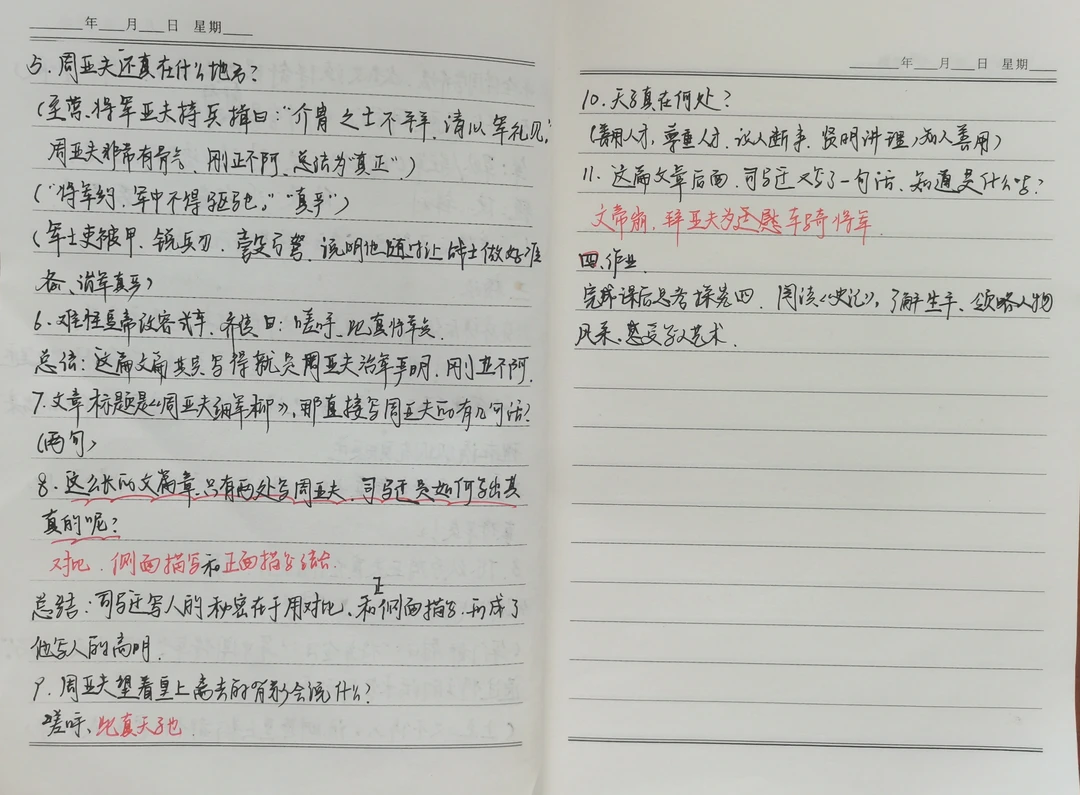 年 月 日 星期
5. 周亚夫还真在什么地方?
(至营,将军亚夫持兵揖曰:“介胄之士不拜,请以军礼见。”
周亚夫非常有骨气,刚正不阿,总结为“真正”)
(“将军约,军中不得驱驰。”“真严”)
(军士吏被甲,锐兵刃,彀弓弩,说明他随时让战士做好准
备、治军真严)
6. 难怪皇帝改容式车,称谓曰:嗟呼,此真将军矣.
总结:这篇文篇其实写得就是周亚夫治军严明,刚正不阿.
7.文章标题是《周亚夫细军柳》,那直接写周亚夫的有几句话?
(两句)
8.这么长的文篇章,只有两处写周亚夫,司马迁是如何写出其
真的呢?
对比、侧面描写和正面描写结合.
正
总结:司马迁写人的秘密在于用对比、和侧面描写,形成了
他写人的高明.
9.周亚夫望着皇上离去的背影会说什么?
嗟呼、此真天子也.
年 月 日 星期
10.天子真在何处?
(善用人才,尊重人才,识人断事,贤明讲理,知人善用)
11.这篇文章后面,司马迁又写了一句话,知道是什么吗?
文帝崩,拜亚夫为 车骑将军.
四、作业.
完成课后思考探究四,阅读《史记》,了解生平、领略人物
风采、感受写人艺术.